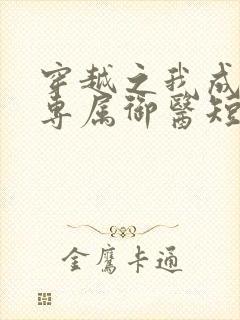 穿越之我成
专属御醫短
金鹰卡通